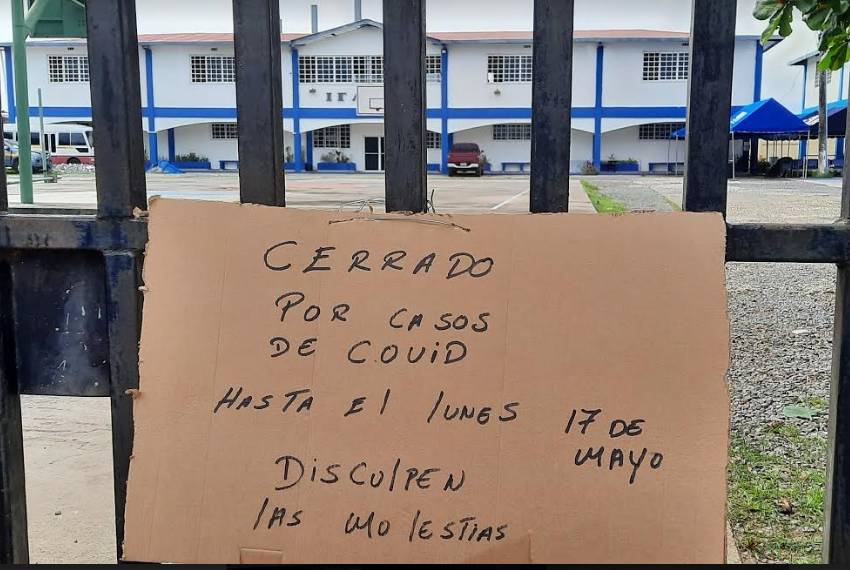 CERRADO
POR CASOS
DE COVID
HASTA El lUNES 17 DE
MAYO
DISCUlPEN
lAS MOlESTIAS